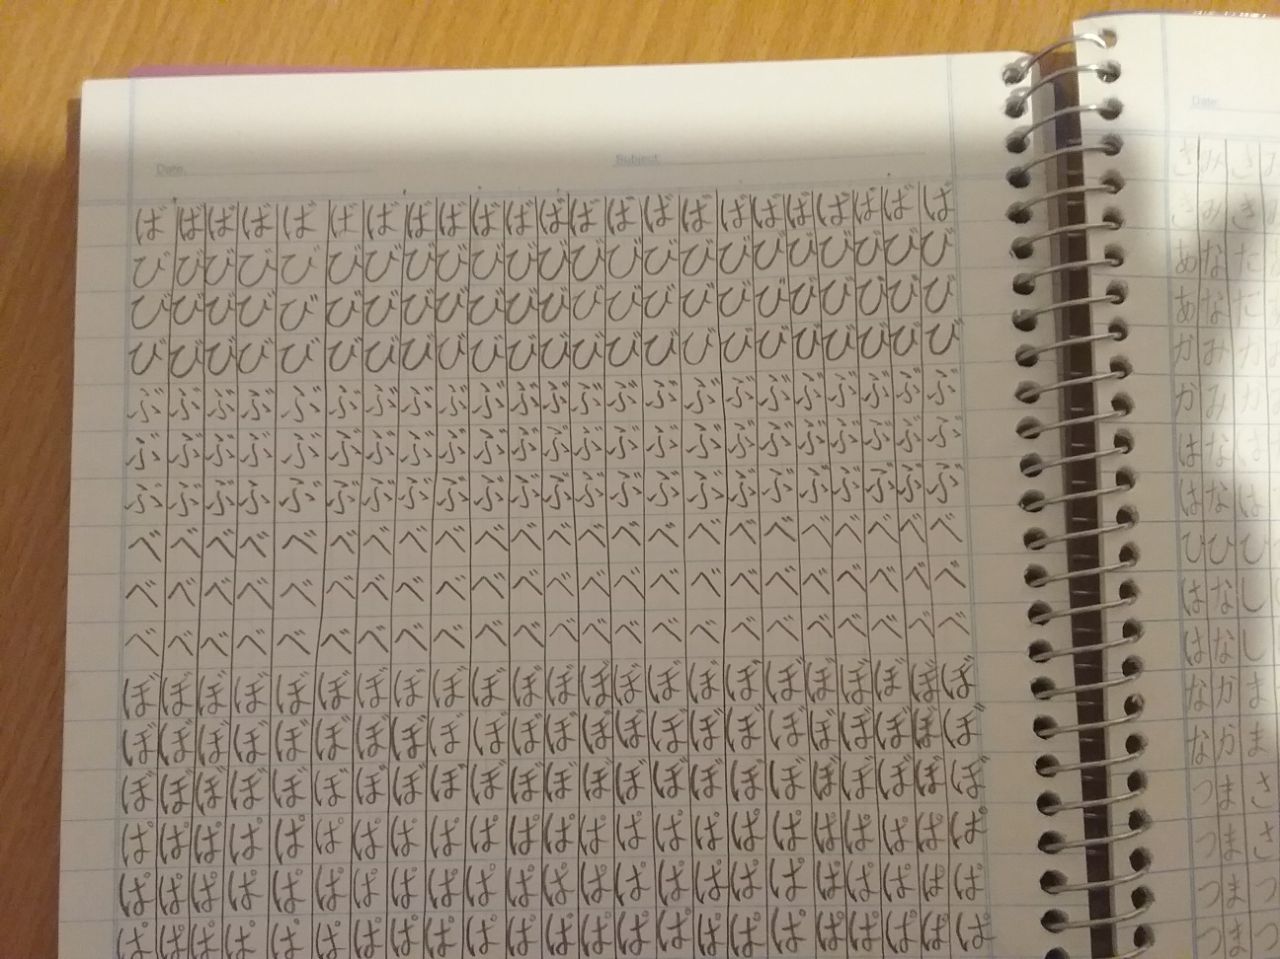 Date: Subject:
ばばばばばばばばばばばばばばばばばばばばばばば
びびびびびびびびびびびびびびびびびびびびびびび
びびびびびびびびびびびびびびびびびびびびびびび
びびびびびびびびびびびびびびびびびびびびびびび
ぶぶぶぶぶぶぶぶぶぶぶぶぶぶぶぶぶぶぶぶぶぶぶ
ぶぶぶぶぶぶぶぶぶぶぶぶぶぶぶぶぶぶぶぶぶぶぶ
ぶぶぶぶぶぶぶぶぶぶぶぶぶぶぶぶぶぶぶぶぶぶぶ
べべべべべべべべべべべべべべべべべべべべべべべ
べべべべべべべべべべべべべべべべべべべべべべべ
べべべべべべべべべべべべべべべべべべべべべべべ
ぼぼぼぼぼぼぼぼぼぼぼぼぼぼぼぼぼぼぼぼぼぼぼ
ぼぼぼぼぼぼぼぼぼぼぼぼぼぼぼぼぼぼぼぼぼぼぼ
ぼぼぼぼぼぼぼぼぼぼぼぼぼぼぼぼぼぼぼぼぼぼぼ
ぱぱぱぱぱぱぱぱぱぱぱぱぱぱぱぱぱぱぱぱぱぱぱ
ぱぱぱぱぱぱぱぱぱぱぱぱぱぱぱぱぱぱぱぱぱぱぱ
ぱぱぱぱぱぱぱぱぱぱぱぱぱぱぱぱぱぱぱぱぱぱぱ
Date:
きみき
きみき
あなた
あなた
かみか
かみか
はなは
はなは
ひひひ
はなし
はなし
なかま
なかま
つまさ
つまさ
つまつ
つまつ